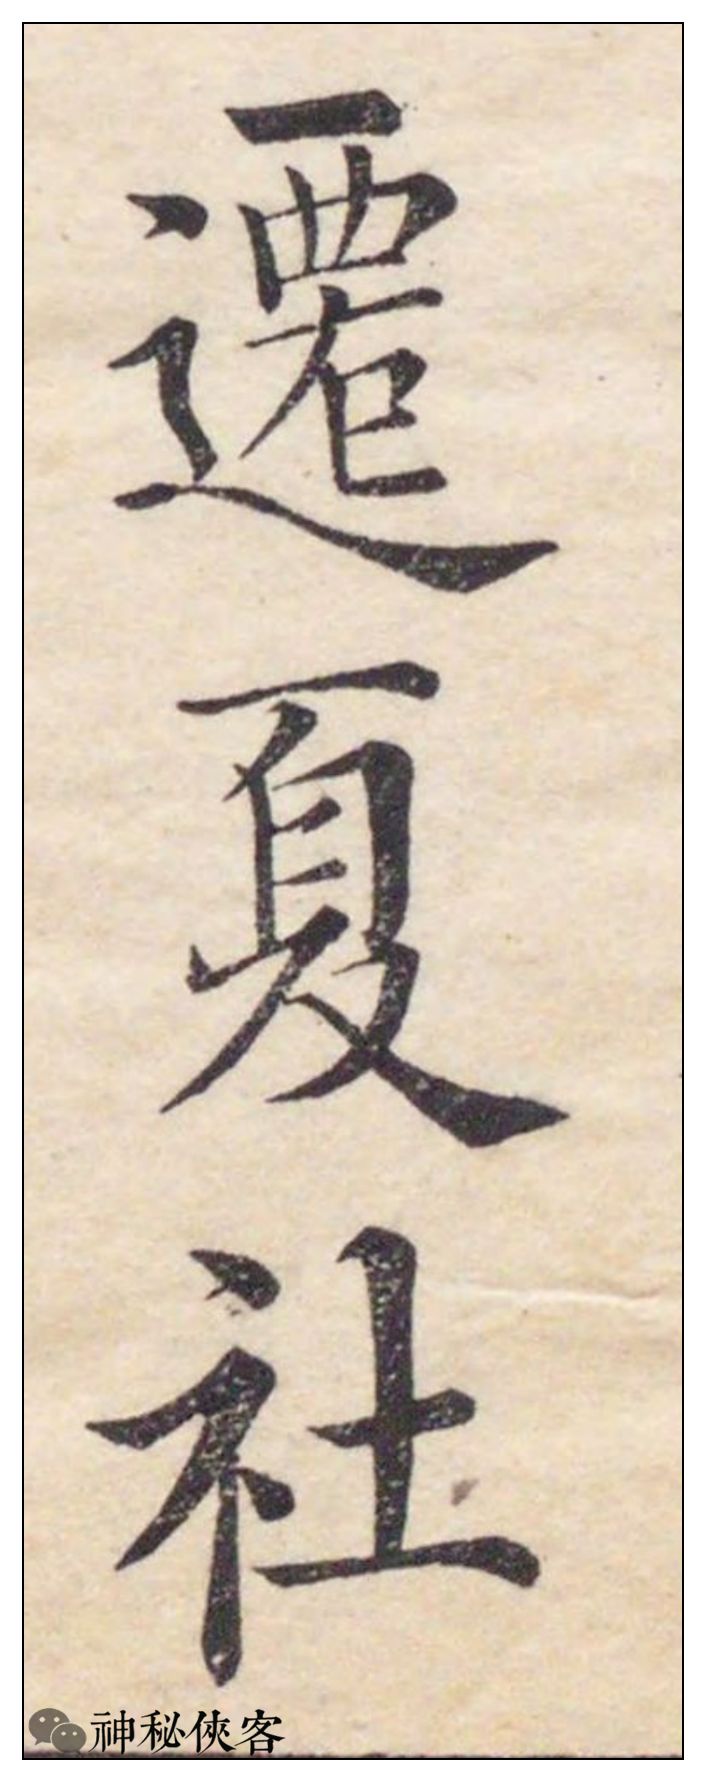 遷夏社
神秘俠客